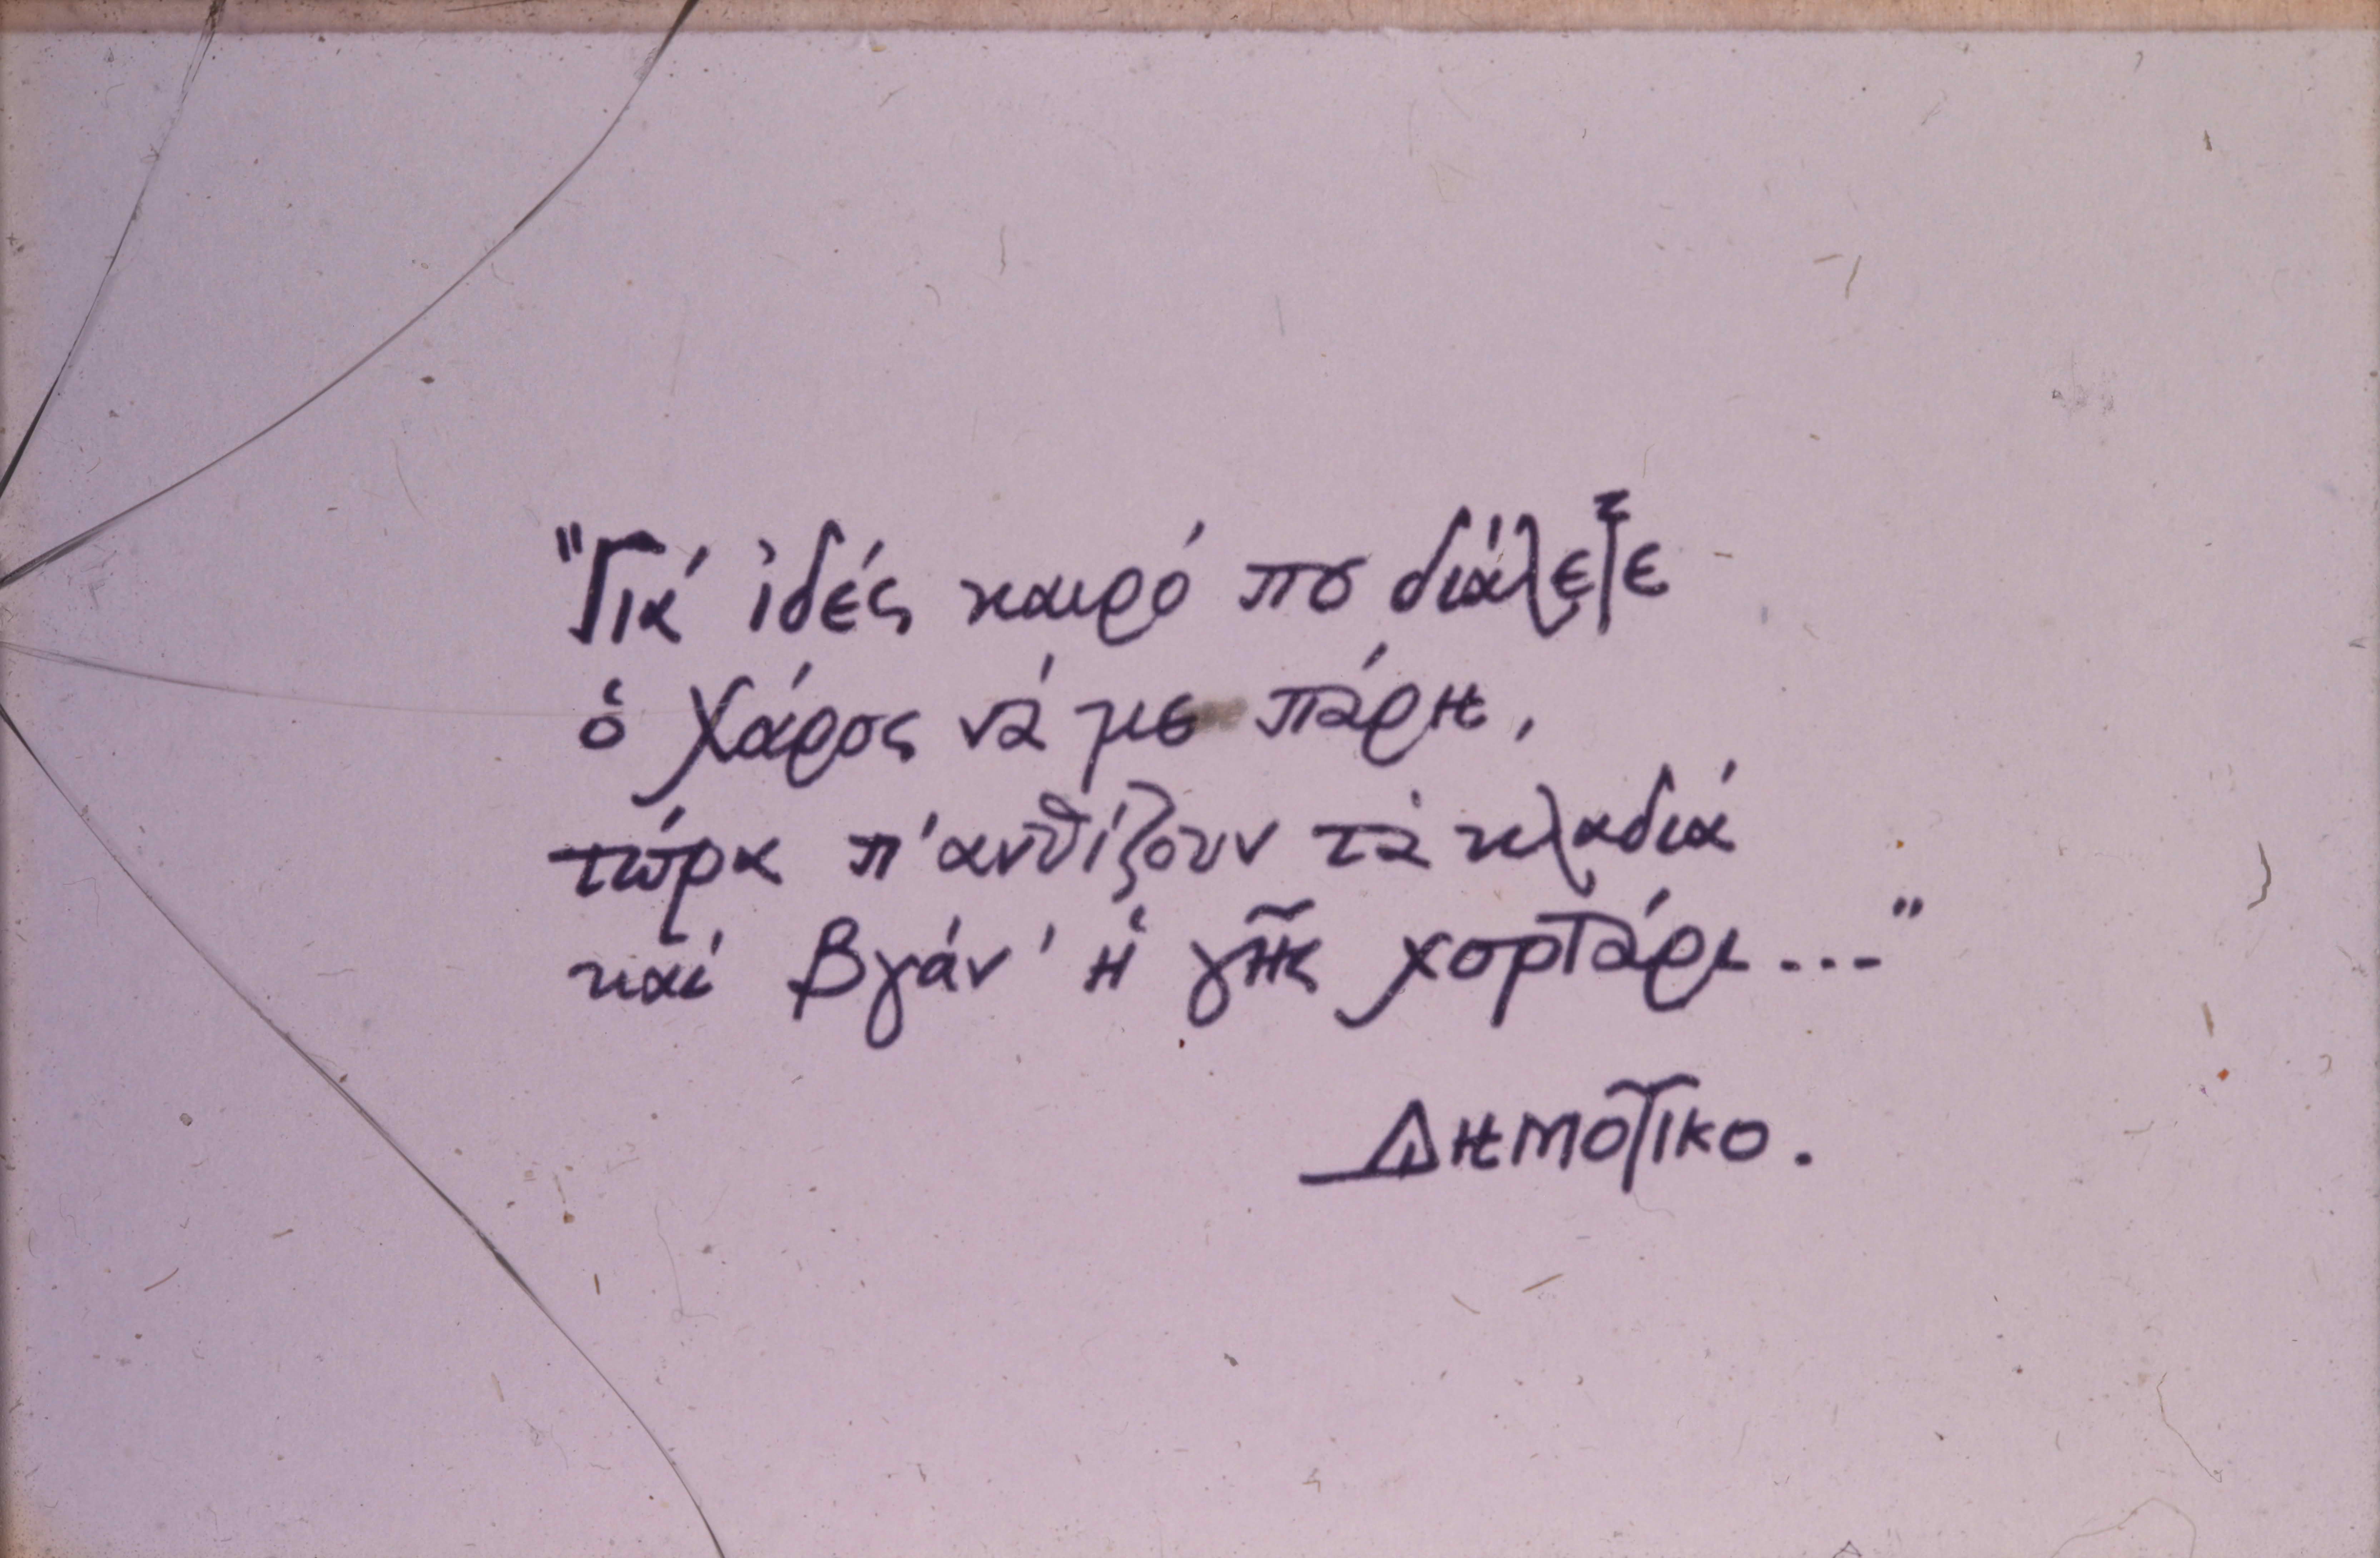 "Γιά ἰδές καιρό που διάλεξε
ὁ Χάρος νά με πάρη,
τώρα π' ανθίζουν τὰ κλαδιά
καί βγάν' ἡ γῆς χορτάρι...."
ΔΗΜΟΤΙΚΟ.